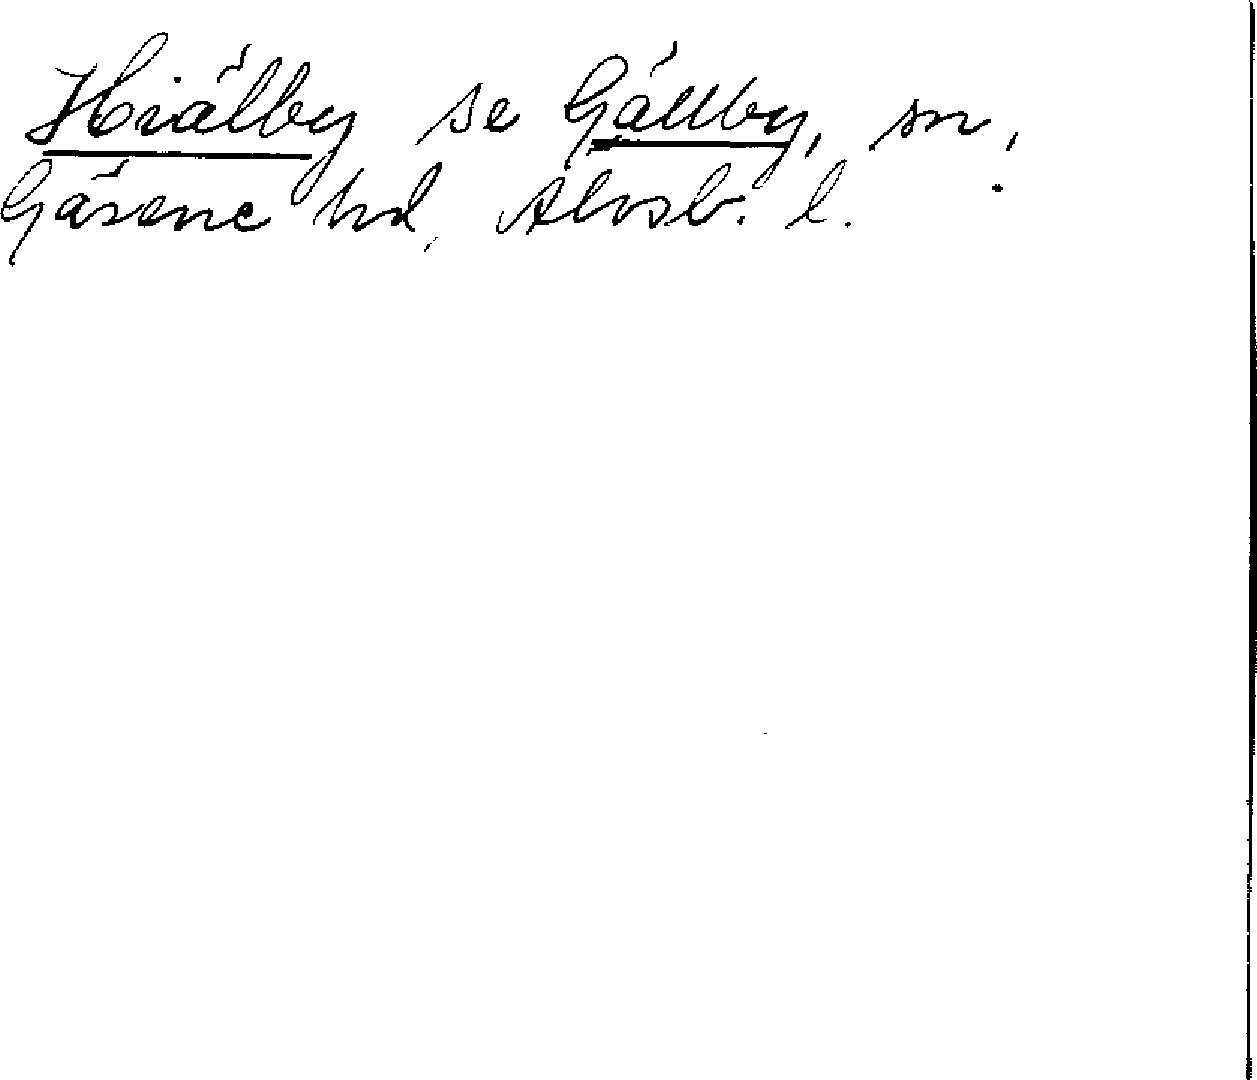 Hiälby se Gällby, sn,
Gäsene hd, Älvsb. l.